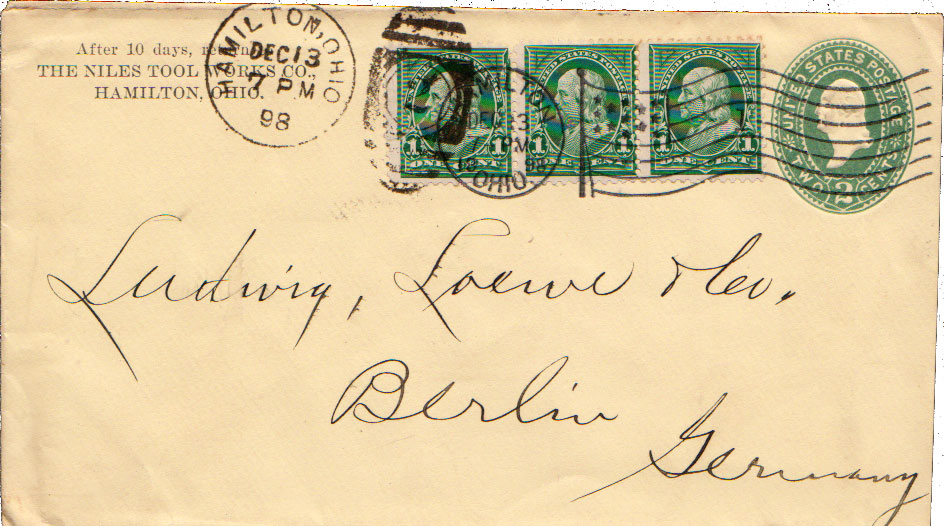 After 10 days, return
THE NILES TOOL WORKS CO.,
HAMILTON, OHIO.
HAMILTON, OHIO
DEC 13
7 PM
98
HAMILTON
DEC 13
PM
98
OHIO
1 1
1 1
ONE CENT
1 1
ONE CENT
UNITED STATES POSTAGE
TWO 2 CENTS
Ludwig, Loewe & Co.
Berlin
Germany